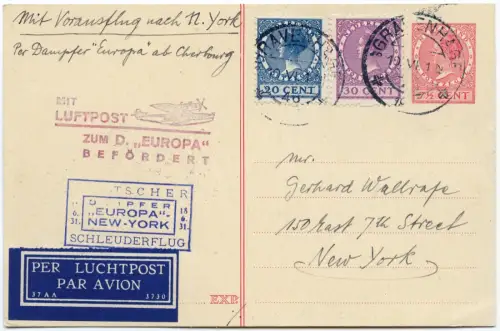 Mit Vorausflug nach N. York
Per Dampfer "Europa" ab Cherbourg
20 CENT
30 CENT
½ CENT
MIT
LUFTPOST
ZUM D. „EUROPA"
BEFÖRDERT
TSCHER
D MPFER
6. „EUROPA"- 18
31. NEW-YORK 31.
SCHLEUDERFLUG
Mr.
Gerhard Wallrafe
150 East 7th Street
New York
PER LUCHTPOST
PAR AVION
37 AA 3730
EXP